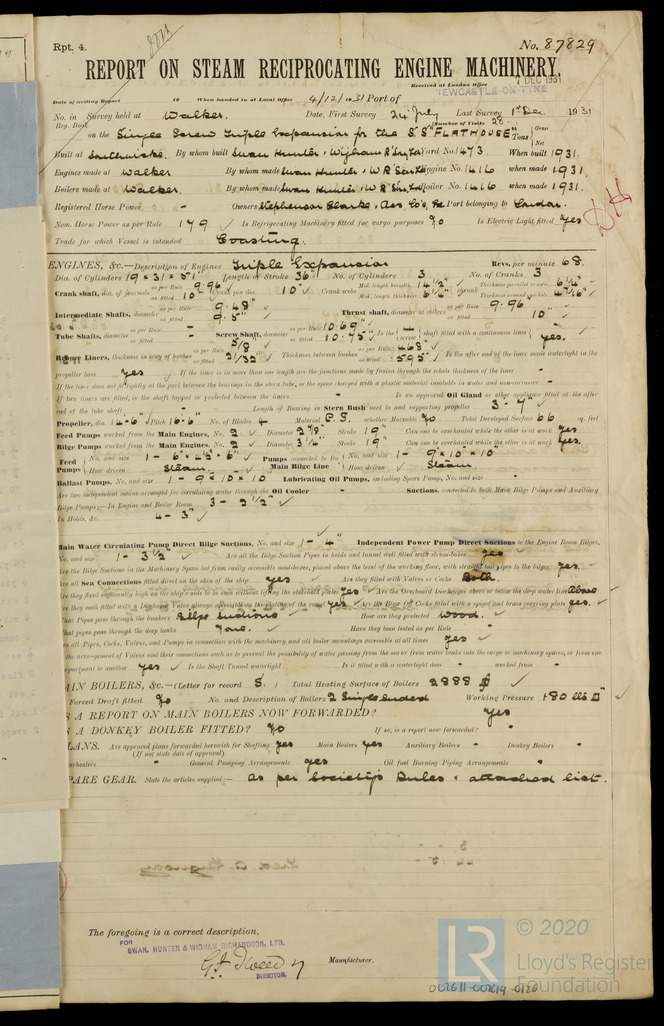 Rpt. 4.
No. 87829
REPORT ON STEAM RECIPROCATING ENGINE MACHINERY.
Received at London Office 7 DEC 1931
Date of writing Report 19 When handed in at Local Office 4/12/1931 Port of NEWCASTLE-ON-TYNE
No. in Survey held at Walker. Date, First Survey 24 July Last Survey 1st Dec. 1931
Reg. Book. (Number of Visits 28
on the Single Screw Triple Expansion for the S.S. "FLATHOUSE" Tons Gross Net
Built at Southwick. By whom built Swan Hunter & Wigham Richardson Yard No. 1473. When built 1931.
Engines made at Walker By whom made Swan Hunter & W R & Co Ltd Engine No. 1416 when made 1931.
Boilers made at Walker. By whom made Swan Hunter & W R & Co Ltd Boiler No. 1416 when made 1931.
Registered Horse Power - Owners Stephenson Clarke & Ass Co's, Ltd Port belonging to London.
Nom. Horse Power as per Rule 179 Is Refrigerating Machinery fitted for cargo purposes No Is Electric Light fitted Yes
Trade for which Vessel is intended Coasting.
ENGINES, &c.—Description of Engines Triple Expansion Revs. per minute 68.
Dia. of Cylinders 19" × 31" × 51" Length of Stroke 36" No. of Cylinders 3 No. of Cranks 3
Crank shaft, dia. of journals as per Rule 9.96" as fitted 10" Crank pin dia. 10" Crank webs Mid. length breadth 14½" Mid. length thickness 6¼" shrunk Thickness parallel to axis 6¼" Thickness around eye-hole
Intermediate Shafts, diameter as per Rule 9.48" as fitted 9.5" Thrust shaft, diameter at collars as per Rule 9.96 as fitted 10"
Tube Shafts, diameter as per Rule - as fitted - Screw Shaft, diameter as per Rule 10.69" as fitted 10.75" Is the screw shaft fitted with a continuous liner yes.
Bronze Liners, thickness in way of bushes as per Rule 5/8" as fitted 21/32" Thickness between bushes as per Rule .468" as fitted .595" Is the after end of the liner made watertight in the
propeller boss yes If the liner is in more than one length are the junctions made by fusion through the whole thickness of the liner -
If the liner does not fit tightly at the part between the bearings in the stern tube, is the space charged with a plastic material insoluble in water and non-corrosive -
If two liners are fitted, is the shaft lapped or protected between the liners - Is an approved Oil Gland or other appliance fitted at the after
end of the tube shaft - Length of Bearing in Stern Bush next to and supporting propeller 3'-7"
Propeller, dia. 14-6" Pitch 16-6" No. of Blades 4 Material C.I. whether Moveable No Total Developed Surface 66 sq. feet
Feed Pumps worked from the Main Engines, No. 2 Diameter 2 7/8" Stroke 19" Can one be overhauled while the other is at work yes.
Bilge Pumps worked from the Main Engines, No. 2 Diameter 3¼" Stroke 19" Can one be overhauled while the other is at work yes.
Feed Pumps No. and size 1 - 6" × 4½" × 6" How driven Steam. Pumps connected to the Main Bilge Line No. and size 1 - 9" × 10 × 10 How driven Steam
Ballast Pumps, No. and size 1 - 9 × 10 × 10 Lubricating Oil Pumps, including Spare Pump, No. and size -
Are two independent means arranged for circulating water through the Oil Cooler - Suctions, connected to both Main Bilge Pumps and Auxiliary
Bilge Pumps:—In Engine and Boiler Room 3 - 2½"
In Holds, &c. 4 - 3"
Main Water Circulating Pump Direct Bilge Suctions, No. and size 1 - 4" Independent Power Pump Direct Suctions to the Engine Room Bilges,
No. and size 1 - 3½" Are all the Bilge Suction Pipes in holds and tunnel well fitted with strum-boxes yes
Are the Bilge Suctions in the Machinery Space led from easily accessible mud-boxes, placed above the level of the working floor, with straight tail pipes to the bilges yes.
Are all Sea Connections fitted direct on the skin of the ship yes Are they fitted with Valves or Cocks Both.
Are they fixed sufficiently high on the ship's side to be seen without lifting the stokehold plates yes Are the Overboard Discharges above or below the deep water line Above
Are they each fitted with a Discharge Valve always accessible on the plating of the vessel yes Are the Blow Off Cocks fitted with a spigot and brass covering plate yes.
What Pipes pass through the bunkers Bilge Suctions How are they protected Wood.
What pipes pass through the deep tanks None. Have they been tested as per Rule -
Are all Pipes, Cocks, Valves, and Pumps in connection with the machinery and all boiler mountings accessible at all times yes
the arrangement of Valves and their connections such as to prevent the possibility of water passing from the sea or from water tanks into the cargo or machinery spaces, or from one
compartment to another yes Is the Shaft Tunnel watertight - Is it fitted with a watertight door - worked from -
MAIN BOILERS, &c.—(Letter for record S.) Total Heating Surface of Boilers 2888
Forced Draft fitted No No. and Description of Boilers 2 Single Ended Working Pressure 180 lbs
IS A REPORT ON MAIN BOILERS NOW FORWARDED? Yes
IS A DONKEY BOILER FITTED? No If so, is a report now forwarded? -
PLANS. Are approved plans forwarded herewith for Shafting yes Main Boilers yes Auxiliary Boilers - Donkey Boilers -
(If not state date of approval)
General Pumping Arrangements yes Oil fuel Burning Piping Arrangements -
SPARE GEAR. State the articles supplied:— As per Society's Rules & attached list.
The foregoing is a correct description,
FOR SWAN, HUNTER & WIGHAM RICHARDSON, LTD.
Manufacturer.
DIRECTOR.
LR © 2020
Lloyd's Register
Foundation
002611-002619-0120